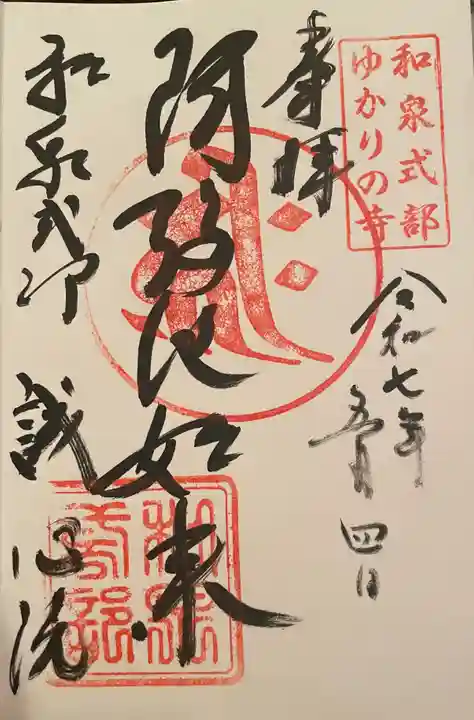 和泉式部
ゆかりの寺
令和七年
五月四日
奉拝
阿弥陀如来
和泉式部
誠心院